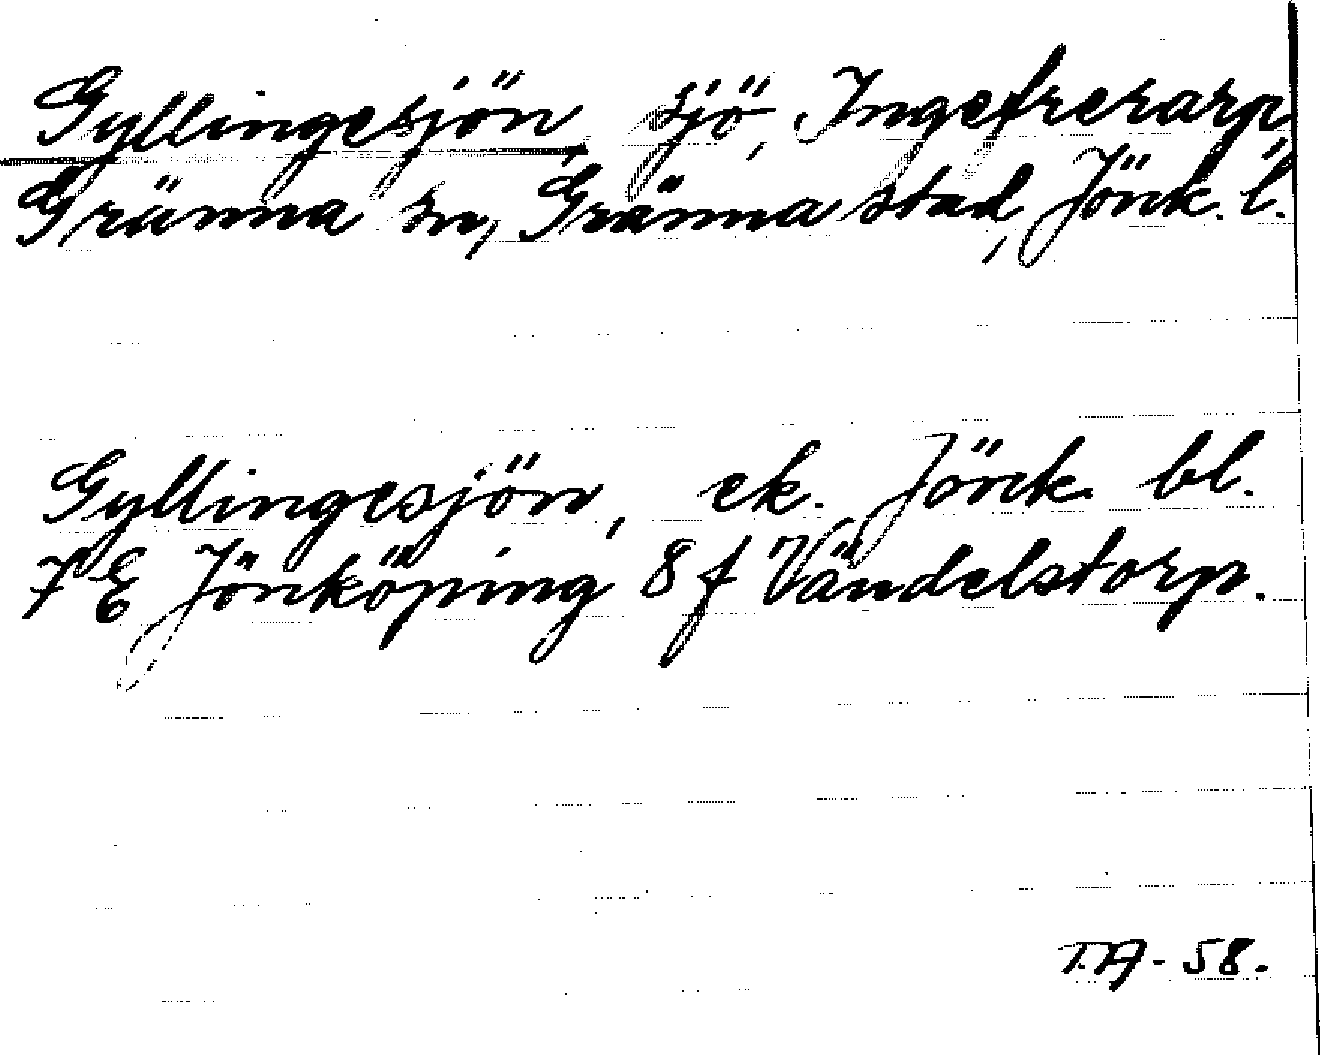 Gyllingesjön, sjö, Ingefrearp,
Gränna sn, Gränna stad, Jönk. l.
Gyllingesjön, ek. Jönk. bl.
7 E Jönköping 8 f Vändelstorp.
T.A - 58.